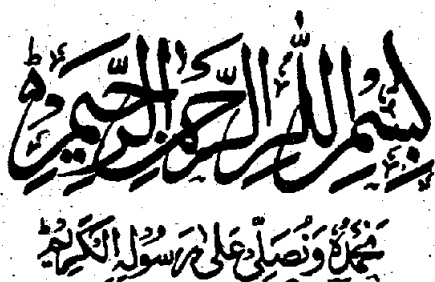 بِسْمِ اللّٰهِ الرَّحْمٰنِ الرَّحِيْمِ
نَحْمَدُهٗ وَنُصَلِّیْ عَلٰی رَسُوْلِهِ الْكَرِيْمِ